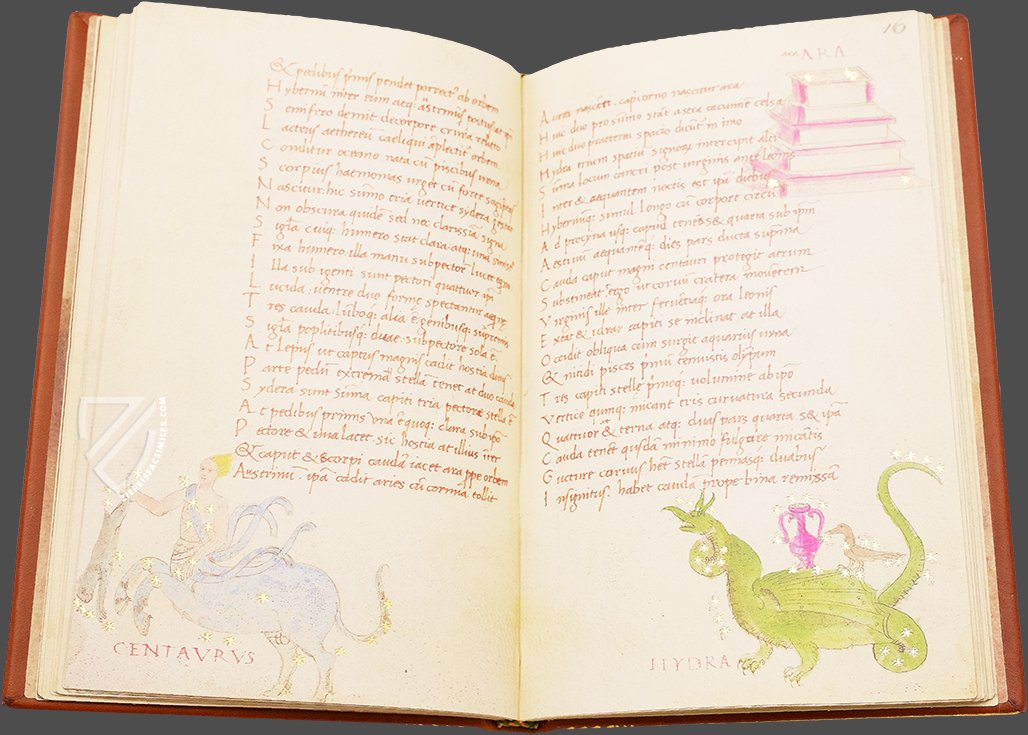 & pedibus p̄mis pendet porrect' ab orbem
Hybernū inter eūm atq; austrinus totus at
Semifero demit de corpore crura relicto
Lacteus aethereū caeliqui āplectit' orbem
Conditur oceano nata cū piscibus urna
Scorpius haemonias urget cū forte sagittas
Nascitur hic sūmo tria vertice sydera gestat
Non obscura quidē sed nec clarissīa signa
Sīgl'a cuiq; humero stat clara atq; una sinistro
Fixa humero illa manu sub pectore lucet
Illa sub igenti sunt pectori quattuor ipī
Lucida uentre duo forme spectantur
Tres cauda lūboq; alia ē genibusq; supremis
Sīgl'a poplitibusq; duae sub pectore sola ē
At lepus ut captus magnis cadit hostia
Parte pedū extrema stella tenet at duo cauda
Sydera sunt sūma capiti tria pectore stella ē
At pedibus primis una ē quoq; clara sub ipō
Pectore & una lacet sic hostia at illius iter
& caput & scorpi caudā iacet ara ppe orbem
Austrinū ipā cadit aries cū cornua tollit
CENTAVRVS
16
ARA
Aurea nascēti capicorno nascitur ara
Huic duo proxima stant asera cacumine celsa
Huic duo praeterea spacio dicūt' in imo
Hydra trium spatiū signoꝝ intercipit
Sūma locum cancri post virginis ante leonis
Inter & aequantem noctis est ipā diebus
Hybernūq; simul longo cū corpore circū
Ad procyna usq; caput tenēs & quarta sub ipm̄
Aestiui aequanteq; dies pars ducta suprīna
Cauda caput magni centauri protegit atrum
Substinet ergo ut coruus cratera mouētem
Virginis ille inter feruetaq; ora leonis
Extat & ichrar capiti se inclinat at illa
Occidit obliqua cūm surgit aquarius urna
& nitidi pisces p̄mū conuistis olȳpum
Tres capiti stelle primoq; uolumine ab ipo
Vertice quinq; micant tris curuatura secunda
Quattuor & terna atq; duas pars quarta s& ipā
Cauda tenet quasdā minimo fulgore micātis
Guttere coruus het stellā pennasq; duabus
Insignitus habet cauda prope bina remissā
HYDRA
FACSIMILES.COM